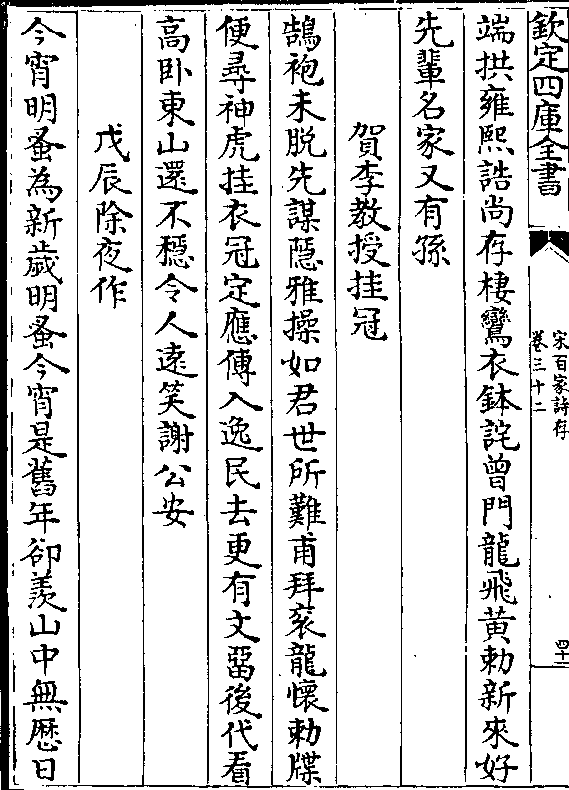 欽定四庫全書
宋百家詩存
卷三十二
四十二
端拱雍熙誥尚存棲鸞衣鉢詫曾門龍飛黃勅新來好
先輩名家又有孫
賀李教授挂冠
鵠袍未脱先謀隠雅操如君世所難甫拜衮龍懐勅牒
便尋神虎挂衣冠定應傳入逸民去更有文留後代看
高卧東山還不穏令人逺笑謝公安
戊辰除夜作
今宵明蚤為新歲明蚤今宵是舊年卻羨山中無歴日